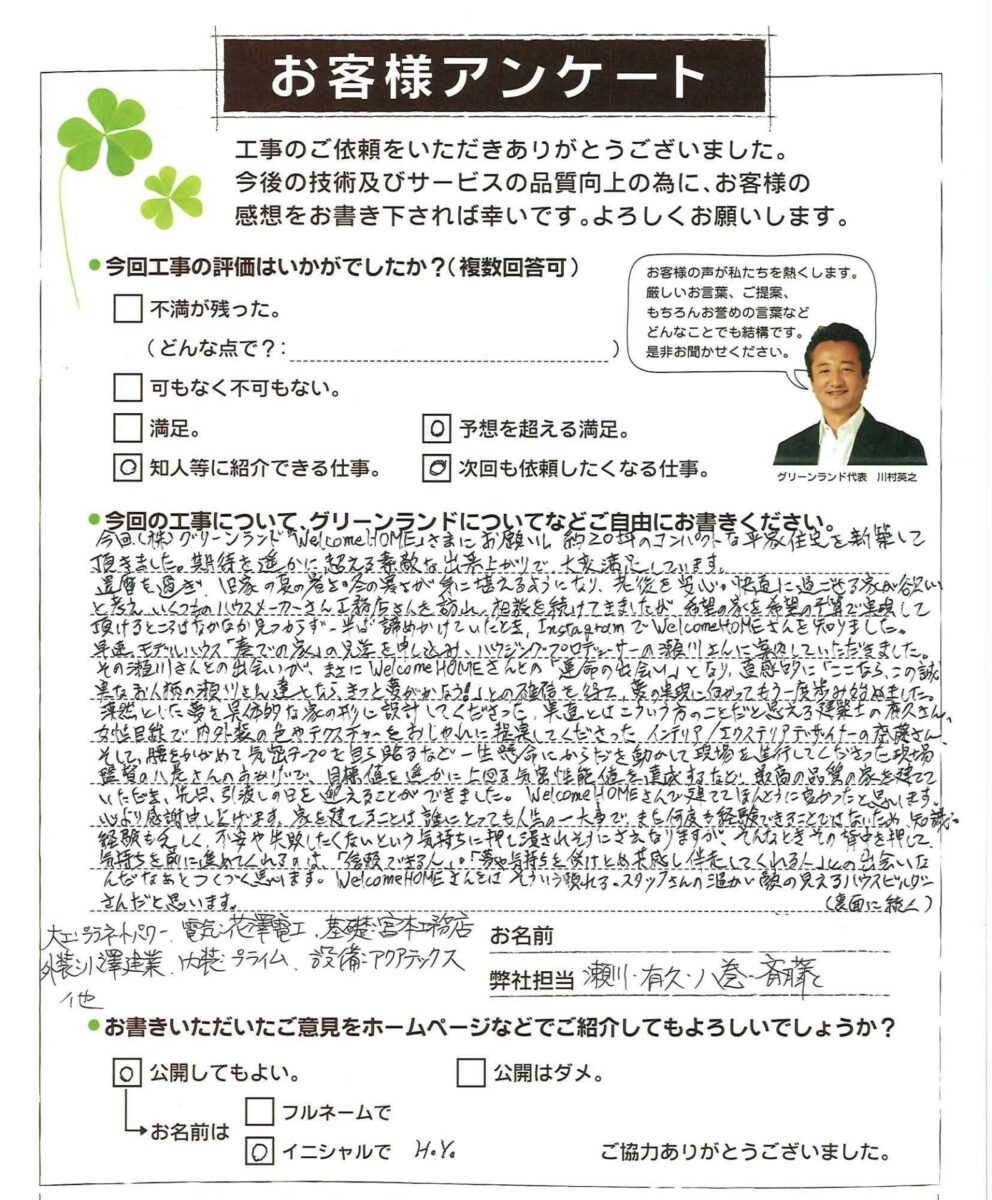 お客様アンケート
工事のご依頼をいただきありがとうございました。
今後の技術及びサービスの品質向上の為に、お客様の
感想をお書き下されば幸いです。よろしくお願いします。
●今回工事の評価はいかがでしたか？（複数回答可）
お客様の声が私たちを熱くします。
厳しいお言葉、ご提案、
もちろんお誉めの言葉など
どんなことでも結構です。
是非お聞かせください。
不満が残った。
（どんな点で？：　）
可もなく不可もない。
満足。
○ 予想を超える満足。
○ 知人等に紹介できる仕事。
○ 次回も依頼したくなる仕事。
グリーンランド代表　川村英之
●今回の工事について、グリーンランドについてなどご自由にお書きください。
今回、（株）グリーンランド「WelcomeHOME」さまにお願いし、約20坪のコンパクトな平家住宅を新築して
頂きました。期待を遥かに超える素敵な出来上がりで、大変満足しています。
還暦も過ぎ、旧家の夏の暑さ・冬の寒さが身に堪えるようになり、老後を安心・快適に過ごせる家が欲しい
と考え、いくつものハウスメーカーさん工務店さんを訪れ、相談を続けてきましたが、希望の家を希望の予算で実現して
頂けるところはなかなか見つからず、半ば諦めかけていたとき、InstagramでWelcomeHOMEさんを知りました。
早速、モデルハウス「奏での家」の見学を申し込み、ハウジングプロデューサーの瀬川さんに案内していただきました。
その瀬川さんとの出会いが、まさにWelcomeHOMEさんとの「運命の出会い」となり、直感的に「ここなら、この誠
実なお人柄の瀬川さん達となら、きっと夢がかなう！」との確信を得て、夢の実現に向かってもう一度歩み始めました。
漠然とした夢を具体的な家の形に設計してくださった、実直とはこういう方のことだと思える建築士の有久さん、
女性目線で内外装の色やテクスチャーをおしゃれに提案してくださったインテリア/エクステリアデザイナーの斉藤さん、
そして、腰をかがめて気密テープを自ら貼るなど一生懸命にからだを動かして現場を進行してくださった現場
監督の八巻さんのおかげで、目標値を遥かに上回る気密性能値を達成するなど、最高の品質の家を建てて
いただき、先日、引渡しの日を迎えることができました。WelcomeHOMEさんで建ててほんとうに良かったと思います。
心より感謝申し上げます。家を建てることは誰にとっても人生の一大事で、また何度も経験できることではないため、知識・
経験も乏しく、不安や失敗したくないという気持ちに押し潰されそうにさえなりますが、そんなときその背中を押して
気持ちを前に進めてくれるのは、「信頼できる人」・「夢や気持ちを受けとめ共感し伴走してくれる人」との出会いな
んだなあとつくづく思います。WelcomeHOMEさんとはそういう頼れるスタッフさんの温かい顔の見えるハウスビルダー
さんだと思います。
（裏面に続く）
大工：プラネットパワー、電気：花澤電工、基礎：宮本工務店
外装：小澤建業、内装：プライム、設備：アクアテックス
他
お名前
弊社担当 瀬川・有久・八巻・斉藤
●お書きいただいたご意見をホームページなどでご紹介してもよろしいでしょうか？
○ 公開してもよい。
公開はダメ。
お名前は
フルネームで
○ イニシャルで H.Y.
ご協力ありがとうございました。